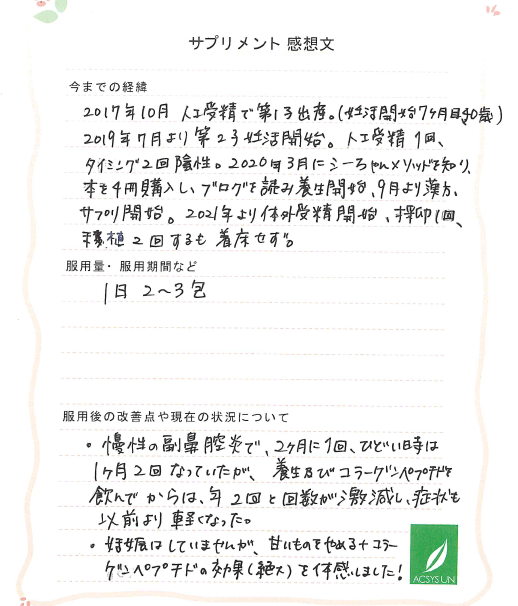 サプリメント 感想文
今までの経緯
2017年10月 人工受精で第1子出産。(妊活開始7ヶ月目、30歳)
2019年7月より第2子妊活開始。人工受精 1回、
タイミング2回陰性。2020年3月にシーちゃんメソッドを知り、
本を4冊購入し、ブログを読み養生開始、9月より漢方、
サプリ開始。2021年より体外受精開始、採卵1回、
移植2回するも着床せず。
服用量・服用期間など
1日 2〜3包
服用後の改善点や現在の状況について
・慢性の副鼻腔炎で、2ヶ月に1回、ひどい時は
1ヶ月2回なっていたが、養生及びコラーゲンペプチドを
飲んでからは、年2回と回数が激減し、症状も
以前より軽くなった。
・妊娠はしていませんが、甘いものをやめる+コラー
ゲンペプチドの効果(絶大)を体感しました!
ACSYSUN